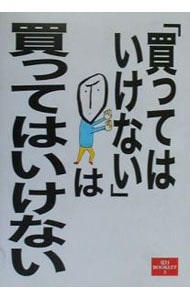 「買っては
いけない」
は
買ってはいけない
BOOKLET